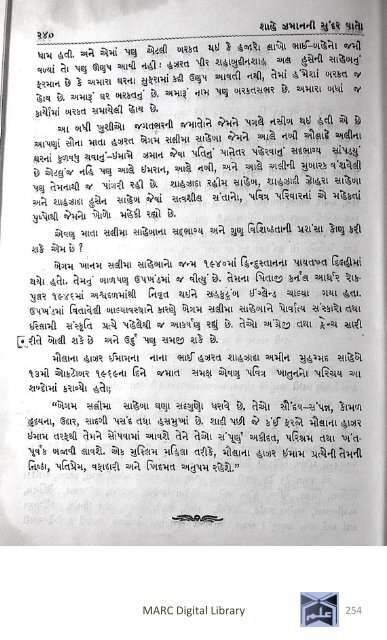 ૨૪૦ શાહે ઝમાનની સુંદર વાતો
ધામ હતી. અને એમાં પણ એટલી બરકત થઇ કે હજારો લાખો ભાઇ-બાઇનો જમી
વળ્યાં તો પણ ઉણપ આવી નહી. હઝરત પીર શહાબુદીનશાહ અલ હુસેની સાહેબનું
ફરમાન છે કે અમારા ઘરના સુફરામાં કદી ઉણપ આવતી નથી, તેમાં હંમેશાં બરકત જ
હોય છે. અમારૂં ઘર બરકતનું છે. અમારૂં નામ પણ બરકતસભર છે. અમારા બધાં જ
કાર્યોમાં બરકત સમાયેલી હોય છે.
આ બધી ખુશીઓ જગતભરની જમાતોને જેમને પગલે નસીબ થઇ હતી એ છે
આપણાં સૌના માતા હઝરત બેગમ સલીમા સાહેબા જેમને આલે નબી ઔલાદે અલીના
ઘરનાં કુળવધુ થવાનું-ઇમામે ઝમાન જેવા પતિનું પાનેતર પહેરવાનું સદભાગ્ય સાંપડ્યું
છે એટલું જ નહિ પણ આલે ઇમરાન, આલે નબી, અને આલે અલીની મુબારક વંશવેલી
પણ તેમનાથી જ પાંગરી રહી છે. શાહઝાદા રહીમ સાહેબ, શાહઝાદી ઝોહરા સાહેબા
અને શાહઝાદા હુસેન સાહેબ જેવાં સત્વશીલ સંતાનો, પવિત્ર પરિવારનાં એ મહેકતાં
પુષ્પોથી જેમનો ખોળો મહેકી રહ્યો છે.
એવણુ માતા સલીમા સાહેબાના સદભાગ્ય અને ગુણ વિશિષ્ટતાની પ્રશંસા કોણ કરી
શકે એમ છે ?
બેગમ ખાનમ સલીમા સાહેબાનો જન્મ ૧૯૪૦માં હિન્દુસ્તાનના પાયતખ્ત દિલ્હીમાં
થયો હતો. તેમનું બાળપણ ઉપખંડમાં જ વીત્યું છે. તેમના પિતાજી કર્નલ આર્થર ક્રોક-
પુલર ૧૯૪૮માં અલાહાબાદમાંથી નિવૃત થઇને સહકુટુંબ ઇંગ્લેન્ડ ચાલ્યા ગયા હતા.
ઉપખંડમાં વિતાવેલી બાલ્યાવસ્થાને કારણે બેગમ સલીમા સાહેબાને પૌર્વાત્ય સંસ્કારો તથા
ઇસ્લામી સંસ્કૃતિ પ્રત્યે પહેલેથી જ આકર્ષણ રહ્યું છે. તેઓ અંગ્રેજી તથા ફ્રેન્ચ સારી
રીતે બોલી શકે છે અને ઉર્દુ પણ સમજી શકે છે.
મૌલાના હાઝર ઇમામના નાના ભાઇ હઝરત શાહઝાદા અમીન મુહમ્મદ સાહેબે
૧૩મી ઓકટોબર ૧૯૬૯ના દિને જમાત સમક્ષ એવણુ પવિત્ર ખાતુનનો પરિચય આ
શબ્દોમાં કરાવ્યો હતો;
"બેગમ સલીમા સાહેબા ઘણા સદગુણો ધરાવે છે. તેઓ સૌંદર્ય-સંપન્ન, કોમળ
હૃદયના, ઉદાર, સાદગી પસંદ તથા હસમુખાં છે. શાદી પછી જે કંઇ ફરજો મૌલાના હાઝર
ઇમામ તરફથી તેમને સોંપવામાં આવશે તેને તેઓ સંપૂર્ણ અકીદત, પરિશ્રમ તથા ખંત-
પૂર્વક બજાવી લાવશે. એક મુસ્લિમ મહિલા તરીકે, મૌલાના હાઝર ઇમામ પ્રત્યેની તેમની
નિષ્ઠા, પતિપ્રેમ, વફાદારી અને ખિદમત અનુપમ રહેશે."
MARC Digital Library 254